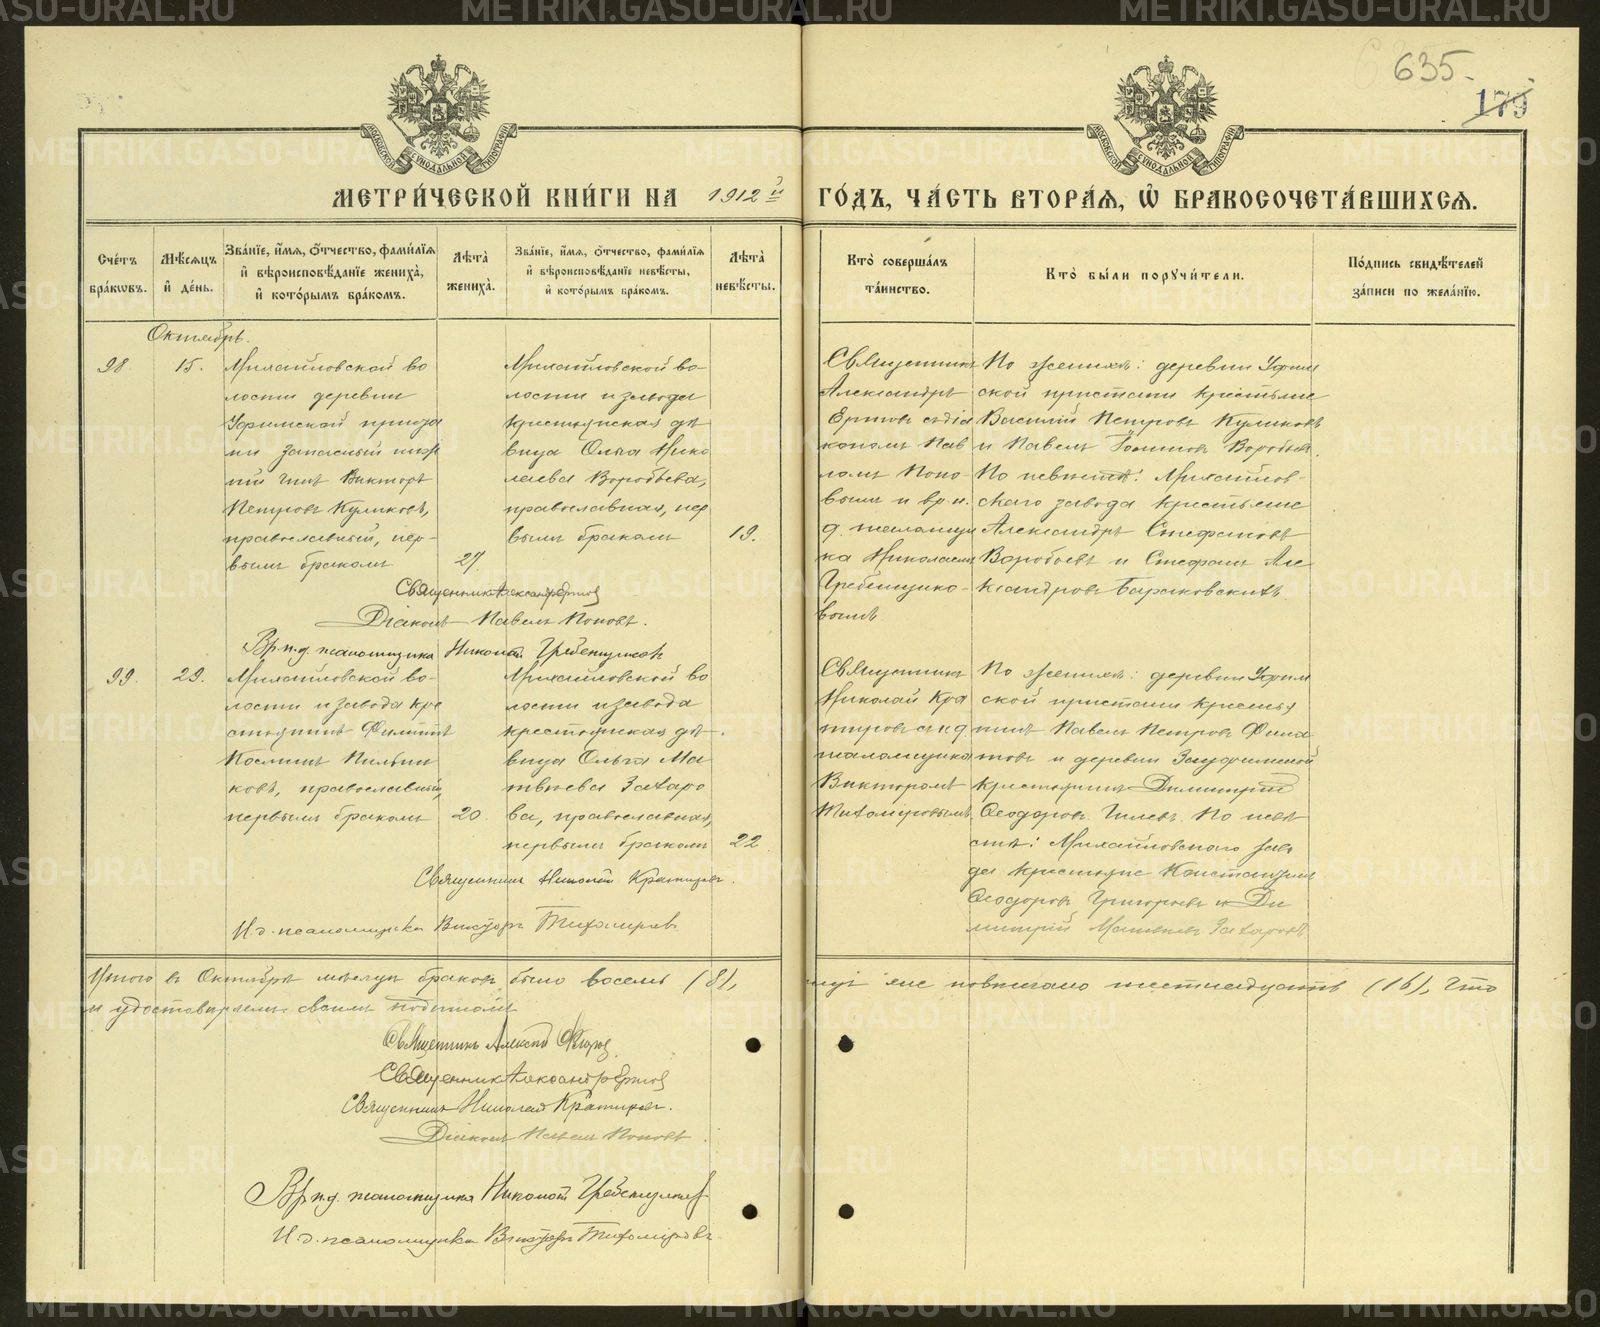 635.
179
МОСКОВСКОЙ СѴНОДАЛЬНОЙ ТИПОГРАФІИ
МОСКОВСКОЙ СѴНОДАЛЬНОЙ ТИПОГРАФІИ
МЕТРИ́ЧЕСКОЙ КНИ́ГИ НА 1912й ГО́ДЪ, ЧА́СТЬ ВТОРА́Я, Ѡ҆ БРАКОСОЧЕТА́ВШИХСѦ.
Сче́тъ бра́кѡвъ.
Мѣ́сѧцъ и҆ де́нь.
Зва́нїе, и҆́мѧ, ѻ҆́тчество, фами́лїѧ и҆ вѣроисповѣ́данїе жениха̀, и҆ кото́рымъ бра́комъ.
Лѣ̑та̀ жениха̀.
Зва́нїе, и҆́мѧ, ѻ҆́тчество, фами́лїѧ и҆ вѣроисповѣ́данїе невѣ́сты, и҆ кото́рымъ бра́комъ.
Лѣ̑та̀ невѣ́сты.
Кто̀ соверша́лъ та́инство.
Кто̀ бы́ли порꙋчи́тели.
По́дпись свидѣ́телей за́писи по жела́нїю.
Октябрь.
98.
15.
Михайловской во
лости деревни
Уфимской приста
ни запасный ниж
ній чинъ Викторъ
Петровъ Куликовъ,
православный, пер-
вымъ бракомъ
27.
Михайловской во-
лости и завода
крестьянская дѣ
вица Ольга Нико
лаева Воробьева,
православная, пер
вымъ бракомъ
19.
Священникъ
Александръ
Ергинъ съ діа
кономъ Пав
ломъ Попо-
вымъ и вр. и.
д. псаломщи
ка Николаемъ
Гребенщико-
вымъ
По женихѣ: деревни Уфим
ской пристани крестьяне
Василій Петровъ Куликовъ
и Павелъ Воробьевъ.
По невѣстѣ: Михайлов-
скаго завода крестьяне
Александръ Стефановъ
Воробьевъ и Стефанъ Але
ксандровъ Бараковскихъ
Священникъ Александръ
Діаконъ Павелъ Поповъ.
Вр. и. д. псаломщика Николай Гребенщиковъ
99.
29.
Михайловской во-
лости и завода кре
стьянинъ Филиппъ
Косминъ
ковъ, православный,
первымъ бракомъ
20.
Михайловской во
лости и завода
крестьянская дѣ-
вица Ольга Ма
твѣева Захаро
ва, православная,
первымъ бракомъ
22
Священникъ
Николай Кра
тировъ съ и д
псаломщика
Викторомъ
Тихомировымъ
По женихѣ: деревни Уфим
ской пристани крестья
нинъ Павелъ Петровъ Фила
товъ и деревни Зауфимской
крестьянинъ Димитрій
Ѳеодоровъ Гилевъ. По невѣ
стѣ: Михайловскаго заво
да крестьяне Константинъ
Ѳеодоровъ Григорьевъ и Ди
митрій Матвѣевъ Захаровъ
Священникъ Николай Кратировъ.
И. д. псаломщика Викторъ Тихомировъ
Итого въ Октябрѣ мѣсяцѣ браковъ было восемь (8), лицъ же повѣнчано шестнадцать (16), что
и удостовѣряемъ своимъ подписомъ
Священникъ
Священникъ Александръ
Священникъ Николай Кратировъ.
Діаконъ Павелъ Поповъ.
Вр. и. д. псаломщика Николай Гребенщиковъ
И. д. псаломщика Викторъ Тихомировъ
METRIKI.GASO-URAL.RU